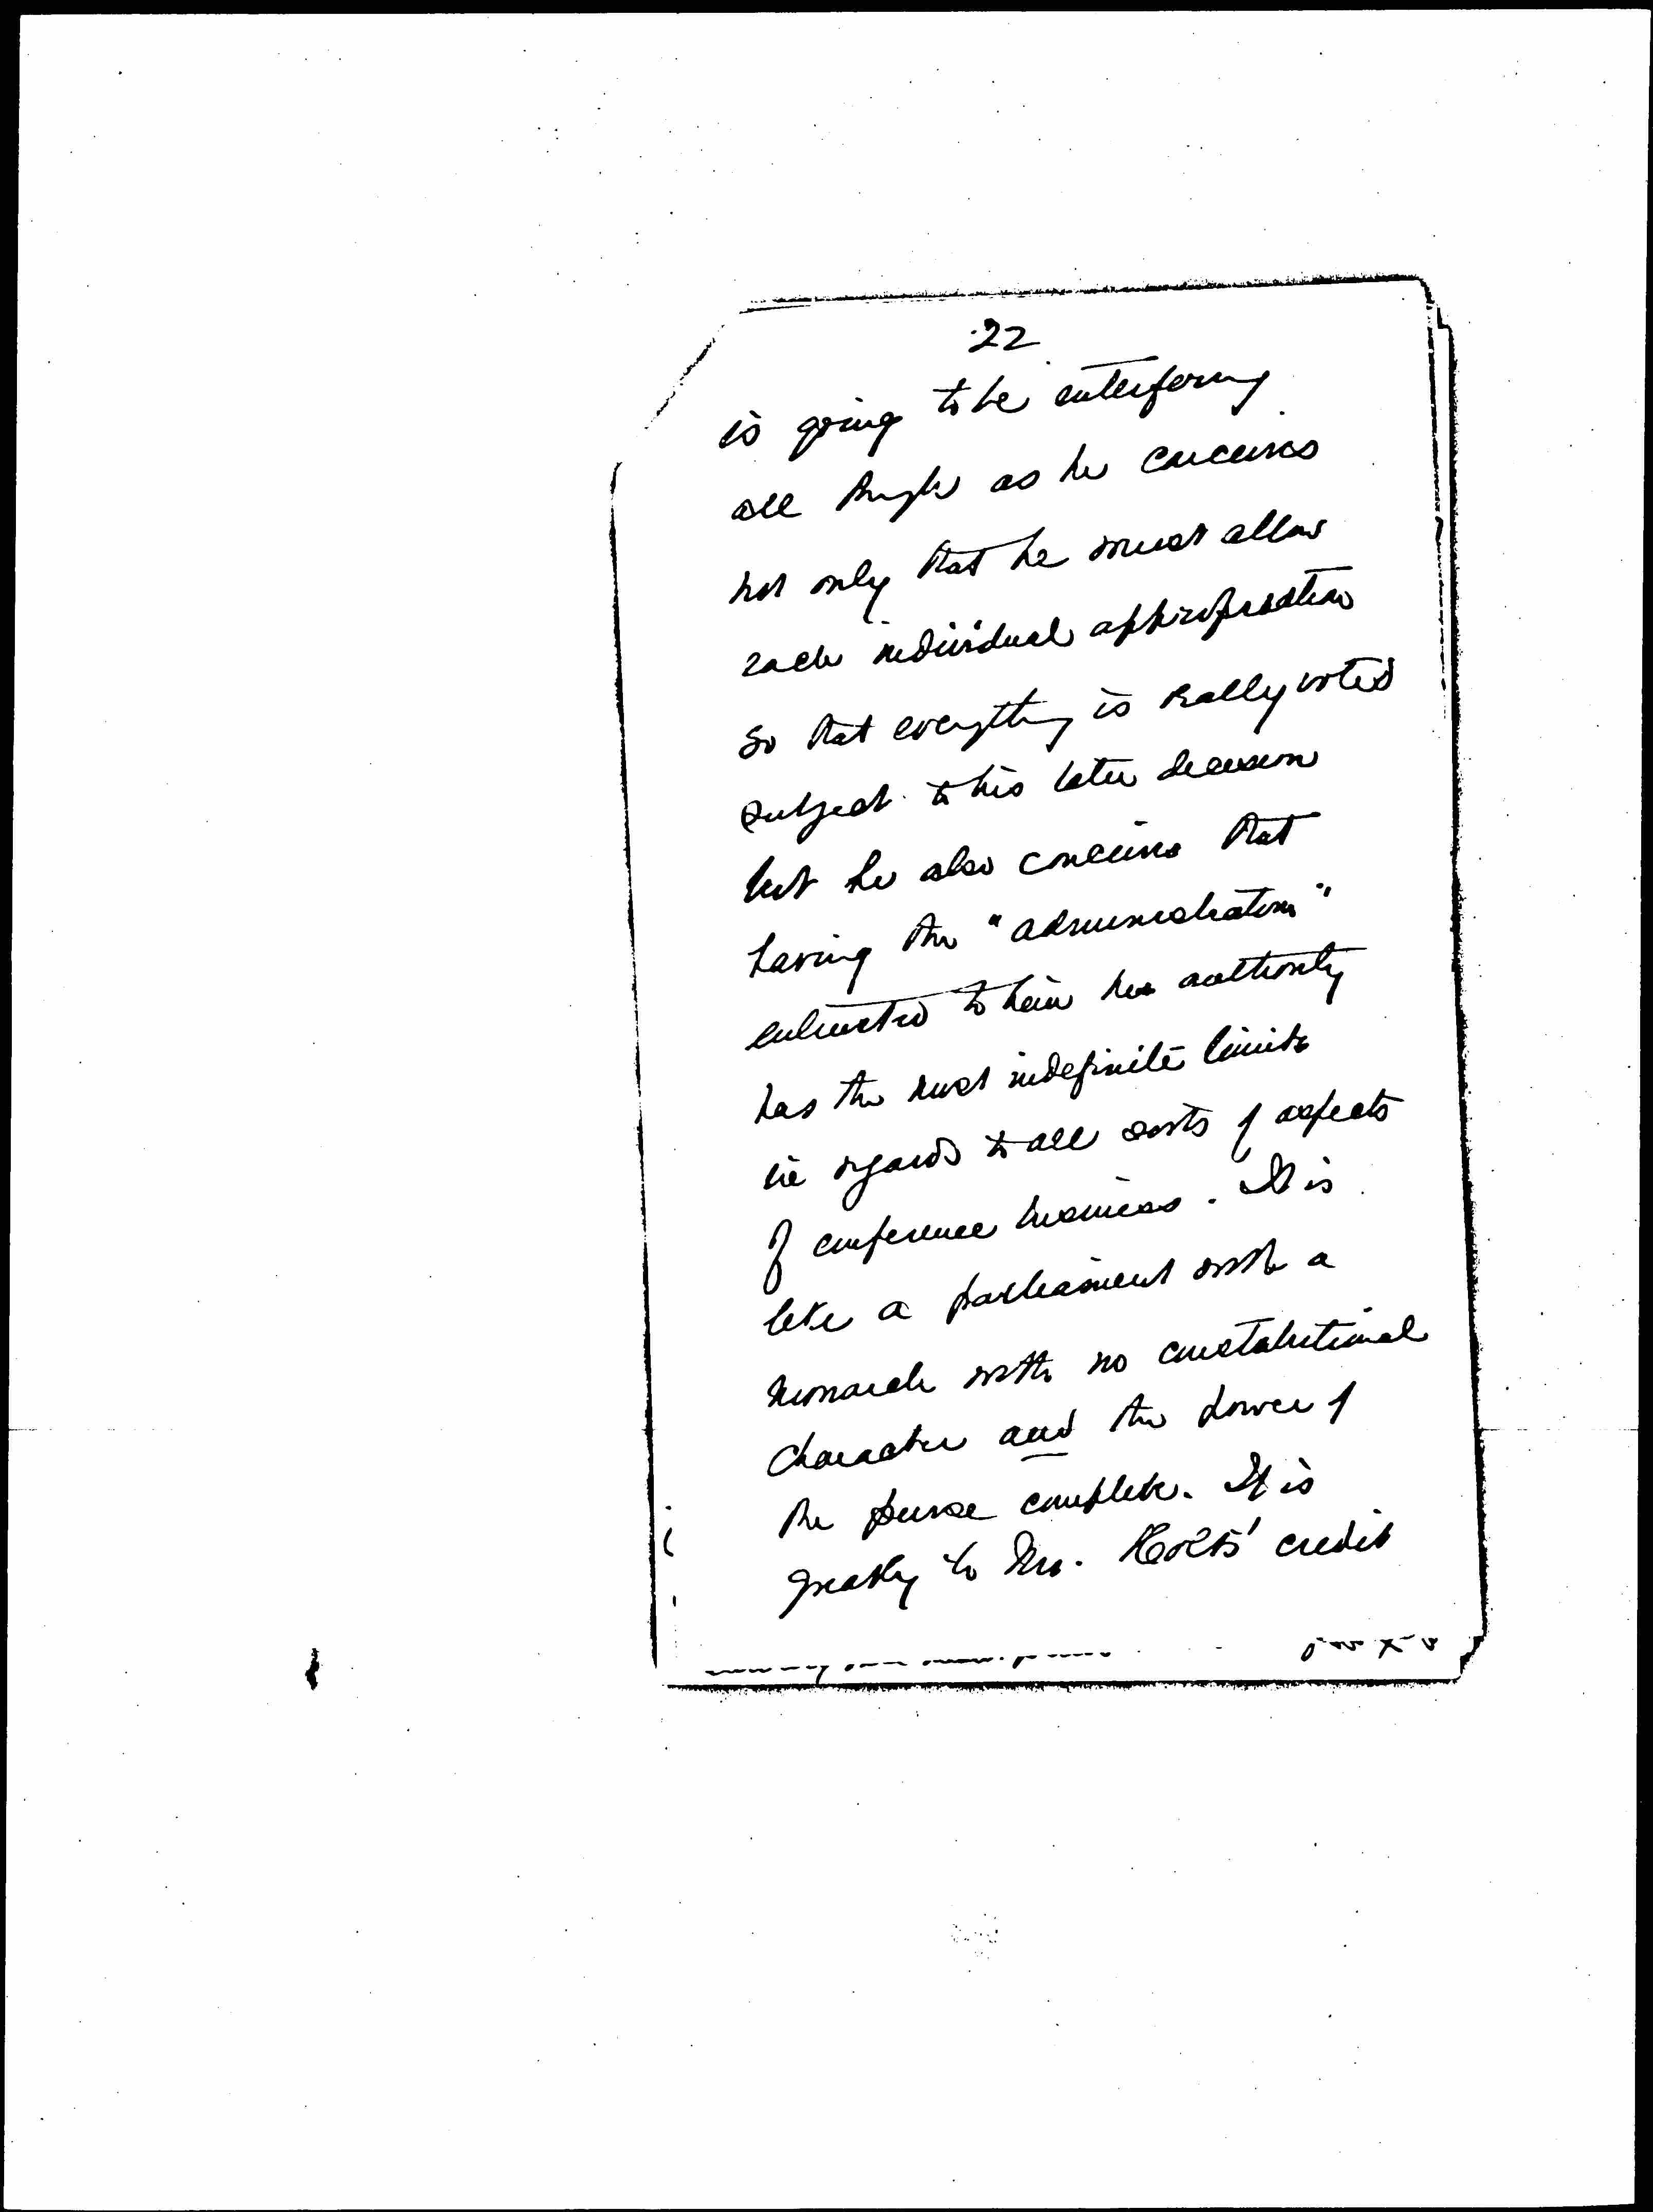 22
is going to be interfering
all through as he conceives
not only that he must allow
each individual appropriation
so that everything is really voted
subject to his later decision
but he also conceives that
having the "administration"
entrusted to him his authority
has the most indefinite limits
in regard to all sorts of aspects
of conference business. It is
like a parliament with a
monarch with no constitutional
character and the power of
the purse complete. It is
greatly to Mr. Holt's credit